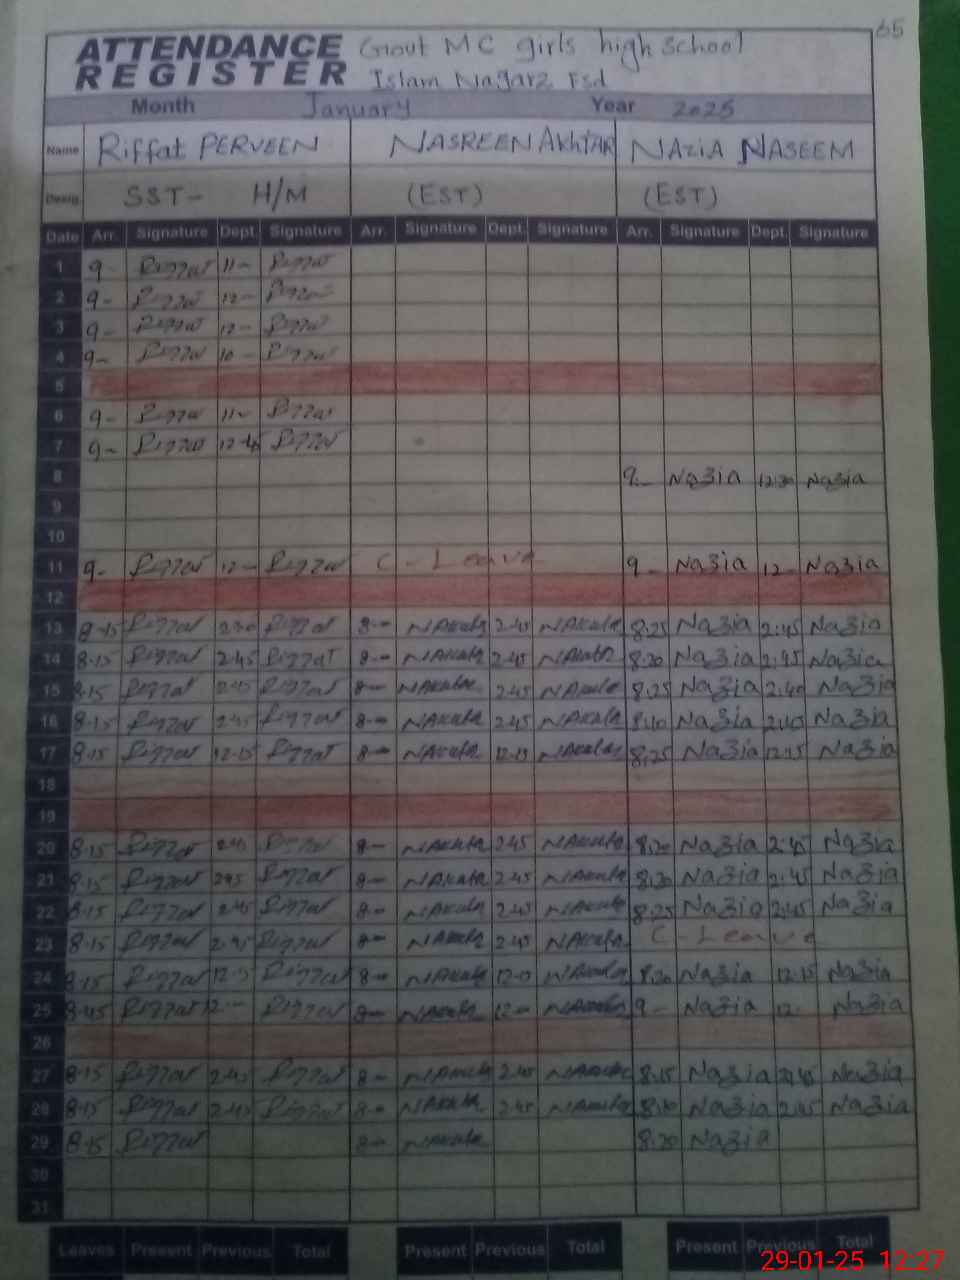 65
ATTENDANCE REGISTER Gout MC girls high school
Islam Nagar2 Fsd
Month January Year 2025
Name Riffat PERVEEN NASREEN Akhtar NAZIA NASEEM
Desig. SST- H/M (EST) (EST)
Date Arr. Signature Dept. Signature Arr. Signature Dept. Signature Arr. Signature Dept. Signature
1 9- Riffat 11- Riffat
2 9- Riffat 12- Riffat
3 9- Riffat 12- Riffat
4 9- Riffat 10- Riffat
5
6 9- Riffat 11- Riffat
7 9- Riffat Riffat
8 9- Nazia 12:30 Nazia
9
10
11 9- Riffat 12- Riffat C-Leave 9- Nazia 12- Nazia
12
13 8-15 Riffat Riffat 8- NAkhtar 2.45 NAkhtar 8.25 Nazia 2:45 Nazia
14 8.15 Riffat 2.45 Riffat 8- NAkhtar 2.45 NAkhtar 8.20 Nazia 2:45 Nazia
15 8.15 Riffat 2.45 Riffat 8- NAkhtar 2.45 NAkhtar 8.25 Nazia 2:40 Nazia
16 8.15 Riffat 2.45 Riffat 8- NAkhtar 2.45 NAkhtar Nazia 2:40 Nazia
17 8.15 Riffat 12.15 Riffat 8- NAkhtar 12.15 NAkhtar 8.25 Nazia 12.15 Nazia
18
19
20 8.15 Riffat 2.45 Riffat 8- NAkhtar 2.45 NAkhtar 8.20 Nazia 2:45 Nazia
21 8.15 Riffat 2.45 Riffat 8- NAkhtar 2.45 NAkhtar 8.30 Nazia 2:45 Nazia
22 8.15 Riffat 2.45 Riffat 8- NAkhtar 2.45 NAkhtar 8.25 Nazia 2:45 Nazia
23 8.15 Riffat 2.45 Riffat 8- NAkhtar 2.45 NAkhtar C-Leave
24 8.15 Riffat 12.15 Riffat 8- NAkhtar NAkhtar 8.20 Nazia 12.15 Nazia
25 8.45 Riffat 12- Riffat 8- NAkhtar 12- NAkhtar 9- Nazia 12- Nazia
26
27 8.15 Riffat 2.45 Riffat 8- NAkhtar 2.45 NAkhtar 8.15 Nazia 2:45 Nazia
28 8.15 Riffat 2.45 Riffat 8- NAkhtar 2.45 NAkhtar 8.10 Nazia 2:45 Nazia
29 8.15 Riffat 8- NAkhtar 8.20 Nazia
30
31
Leaves Present Previous Total Present Previous Total Present Previous Total
29-01-25 12:27